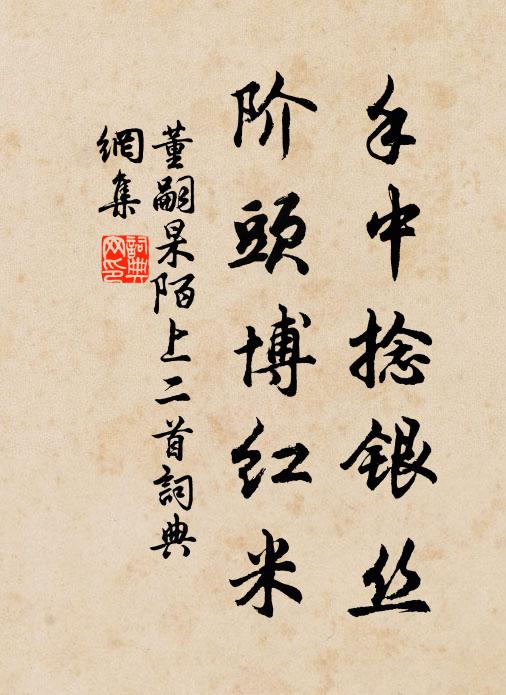 手中捻银丝
阶頭博红米
董嗣杲陌上二首詞典
網集
詞典
网印